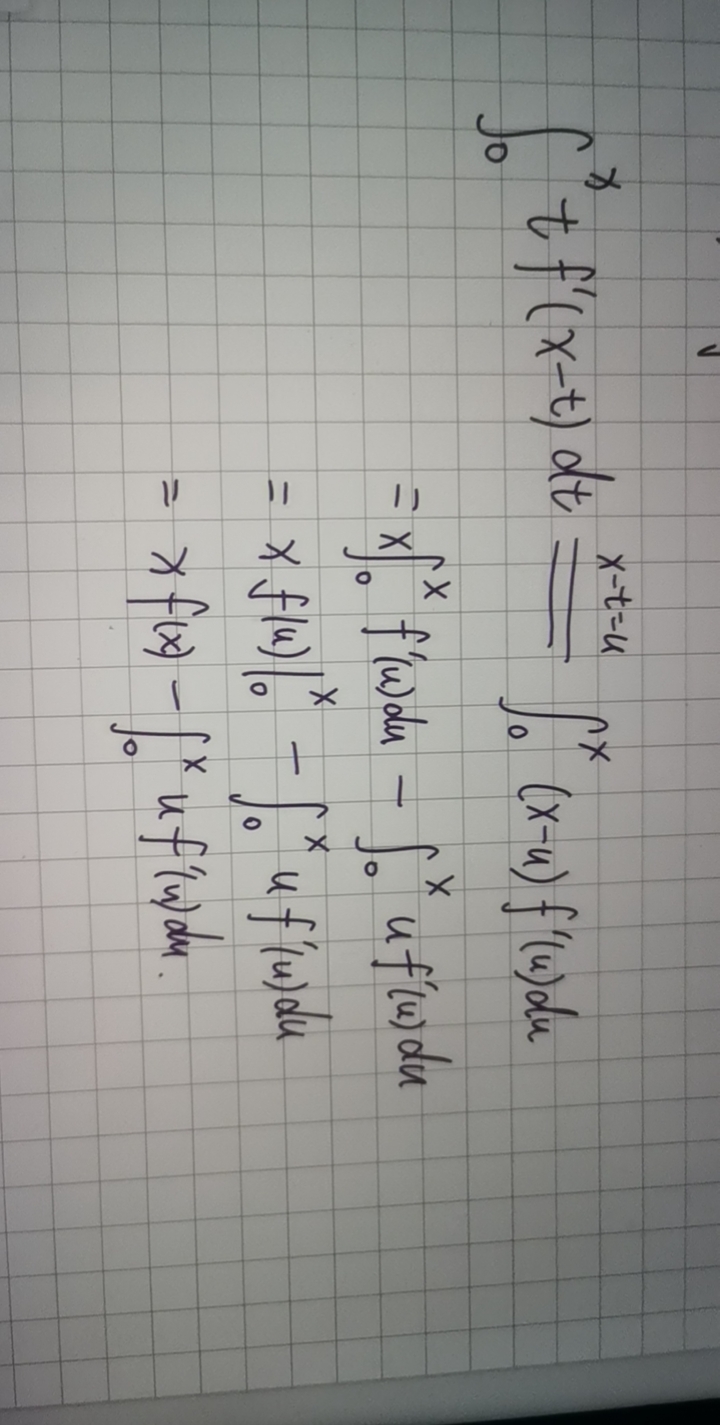 ∫₀ˣ t f'(x-t) dt \overset{x-t=u}{=} ∫₀ˣ (x-u) f'(u) du
= x ∫₀ˣ f'(u) du - ∫₀ˣ u f'(u) du
= x f(u)|₀ˣ - ∫₀ˣ u f'(u) du
= x f(x) - ∫₀ˣ u f'(u) du.